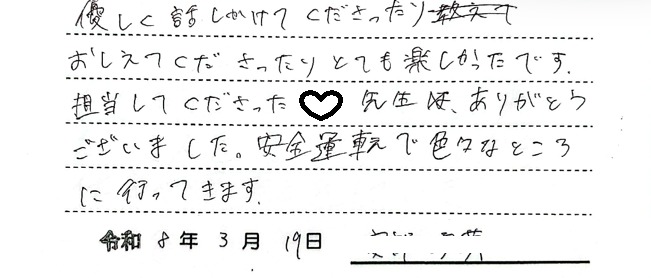 優しく話しかけてくださったり
おしえてくださったりとても楽しかったです.
担当してくださった♡先生は、ありがとう
ございました。安全運転で色々なところ
に行ってきます.
令和 8年 3月 19日